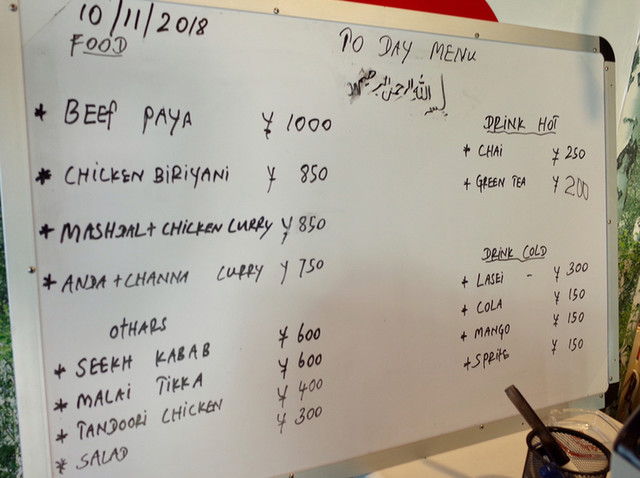 10/11/2018
FOOD
TO DAY MENU
بسم الله الرحمن الرحيم
* BEEF PAYA ¥ 1000
* CHICKEN BIRIYANI ¥ 850
* MASHDAL + CHICKEN CURRY ¥ 850
* ANDA + CHANNA CURRY ¥ 750
OTHARS
* SEEKH KABAB ¥ 600
* MALAI TIKKA ¥ 600
* TANDOORI CHICKEN ¥ 400
* SALAD ¥ 300
DRINK HOT
+ CHAI ¥ 250
+ GREEN TEA ¥ 200
DRINK COLD
+ LASEI - ¥ 300
+ COLA ¥ 150
+ MANGO ¥ 150
+ SPRITE ¥ 150